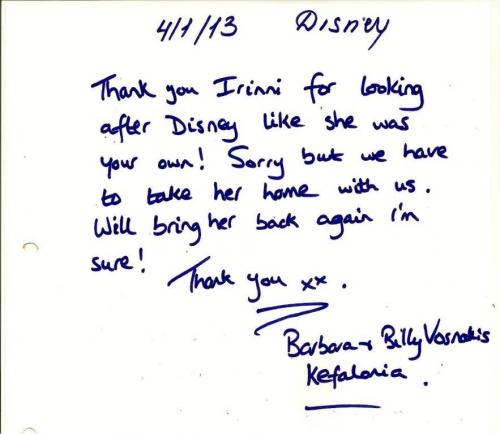 4/1/13 Disney
Thank you Irinni for looking
after Disney like she was
your own! Sorry but we have
to take her home with us.
Will bring her back again i'm
sure!
Thank you xx.
Barbara + Billy Vosnakis
Kefalonia.